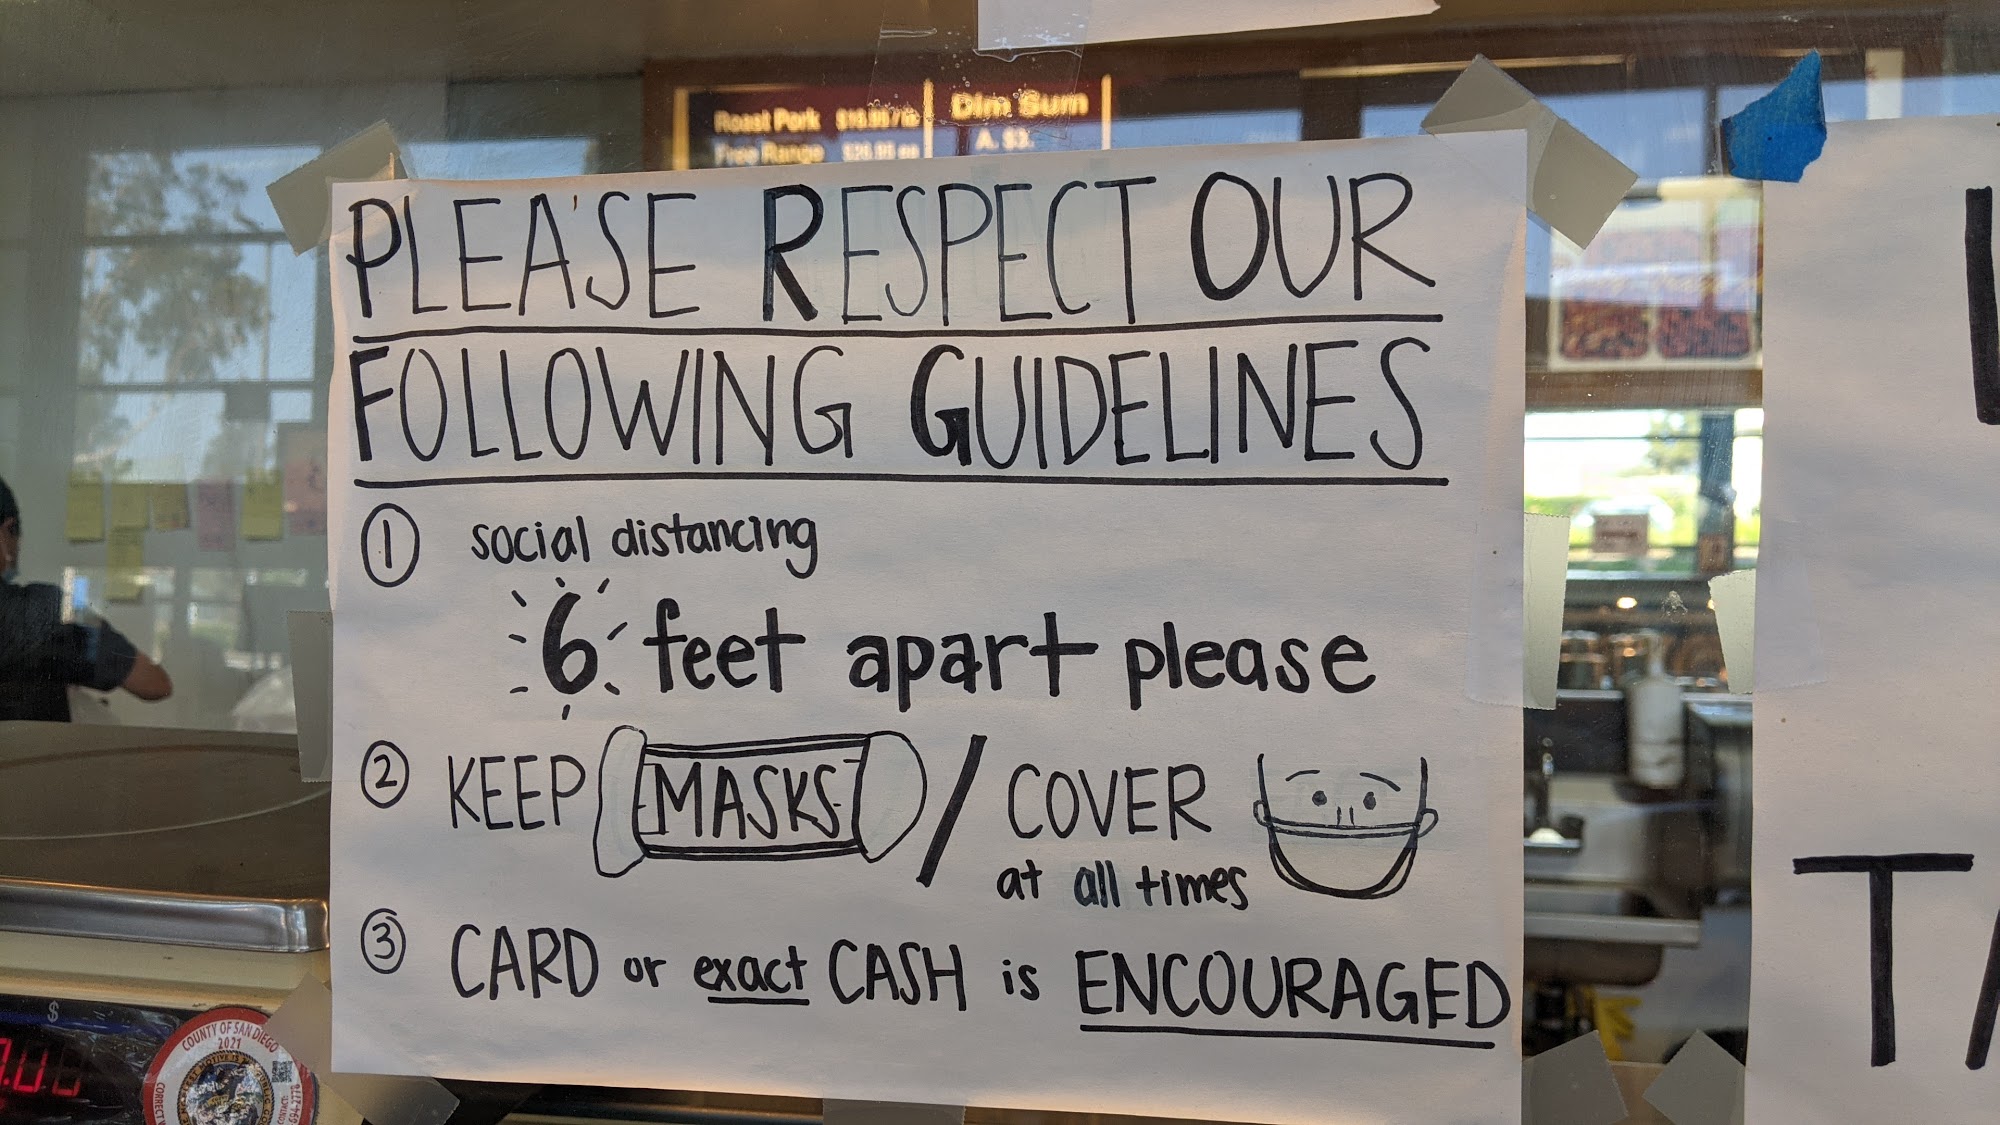 Roast Pork
Free Range
Dim Sum
A. $3.
PLEASE RESPECT OUR
FOLLOWING GUIDELINES
1 social distancing
6 feet apart please
2 KEEP MASKS / COVER
at all times
3 CARD or exact CASH is ENCOURAGED
T
$
COUNTY OF SAN DIEGO
2021